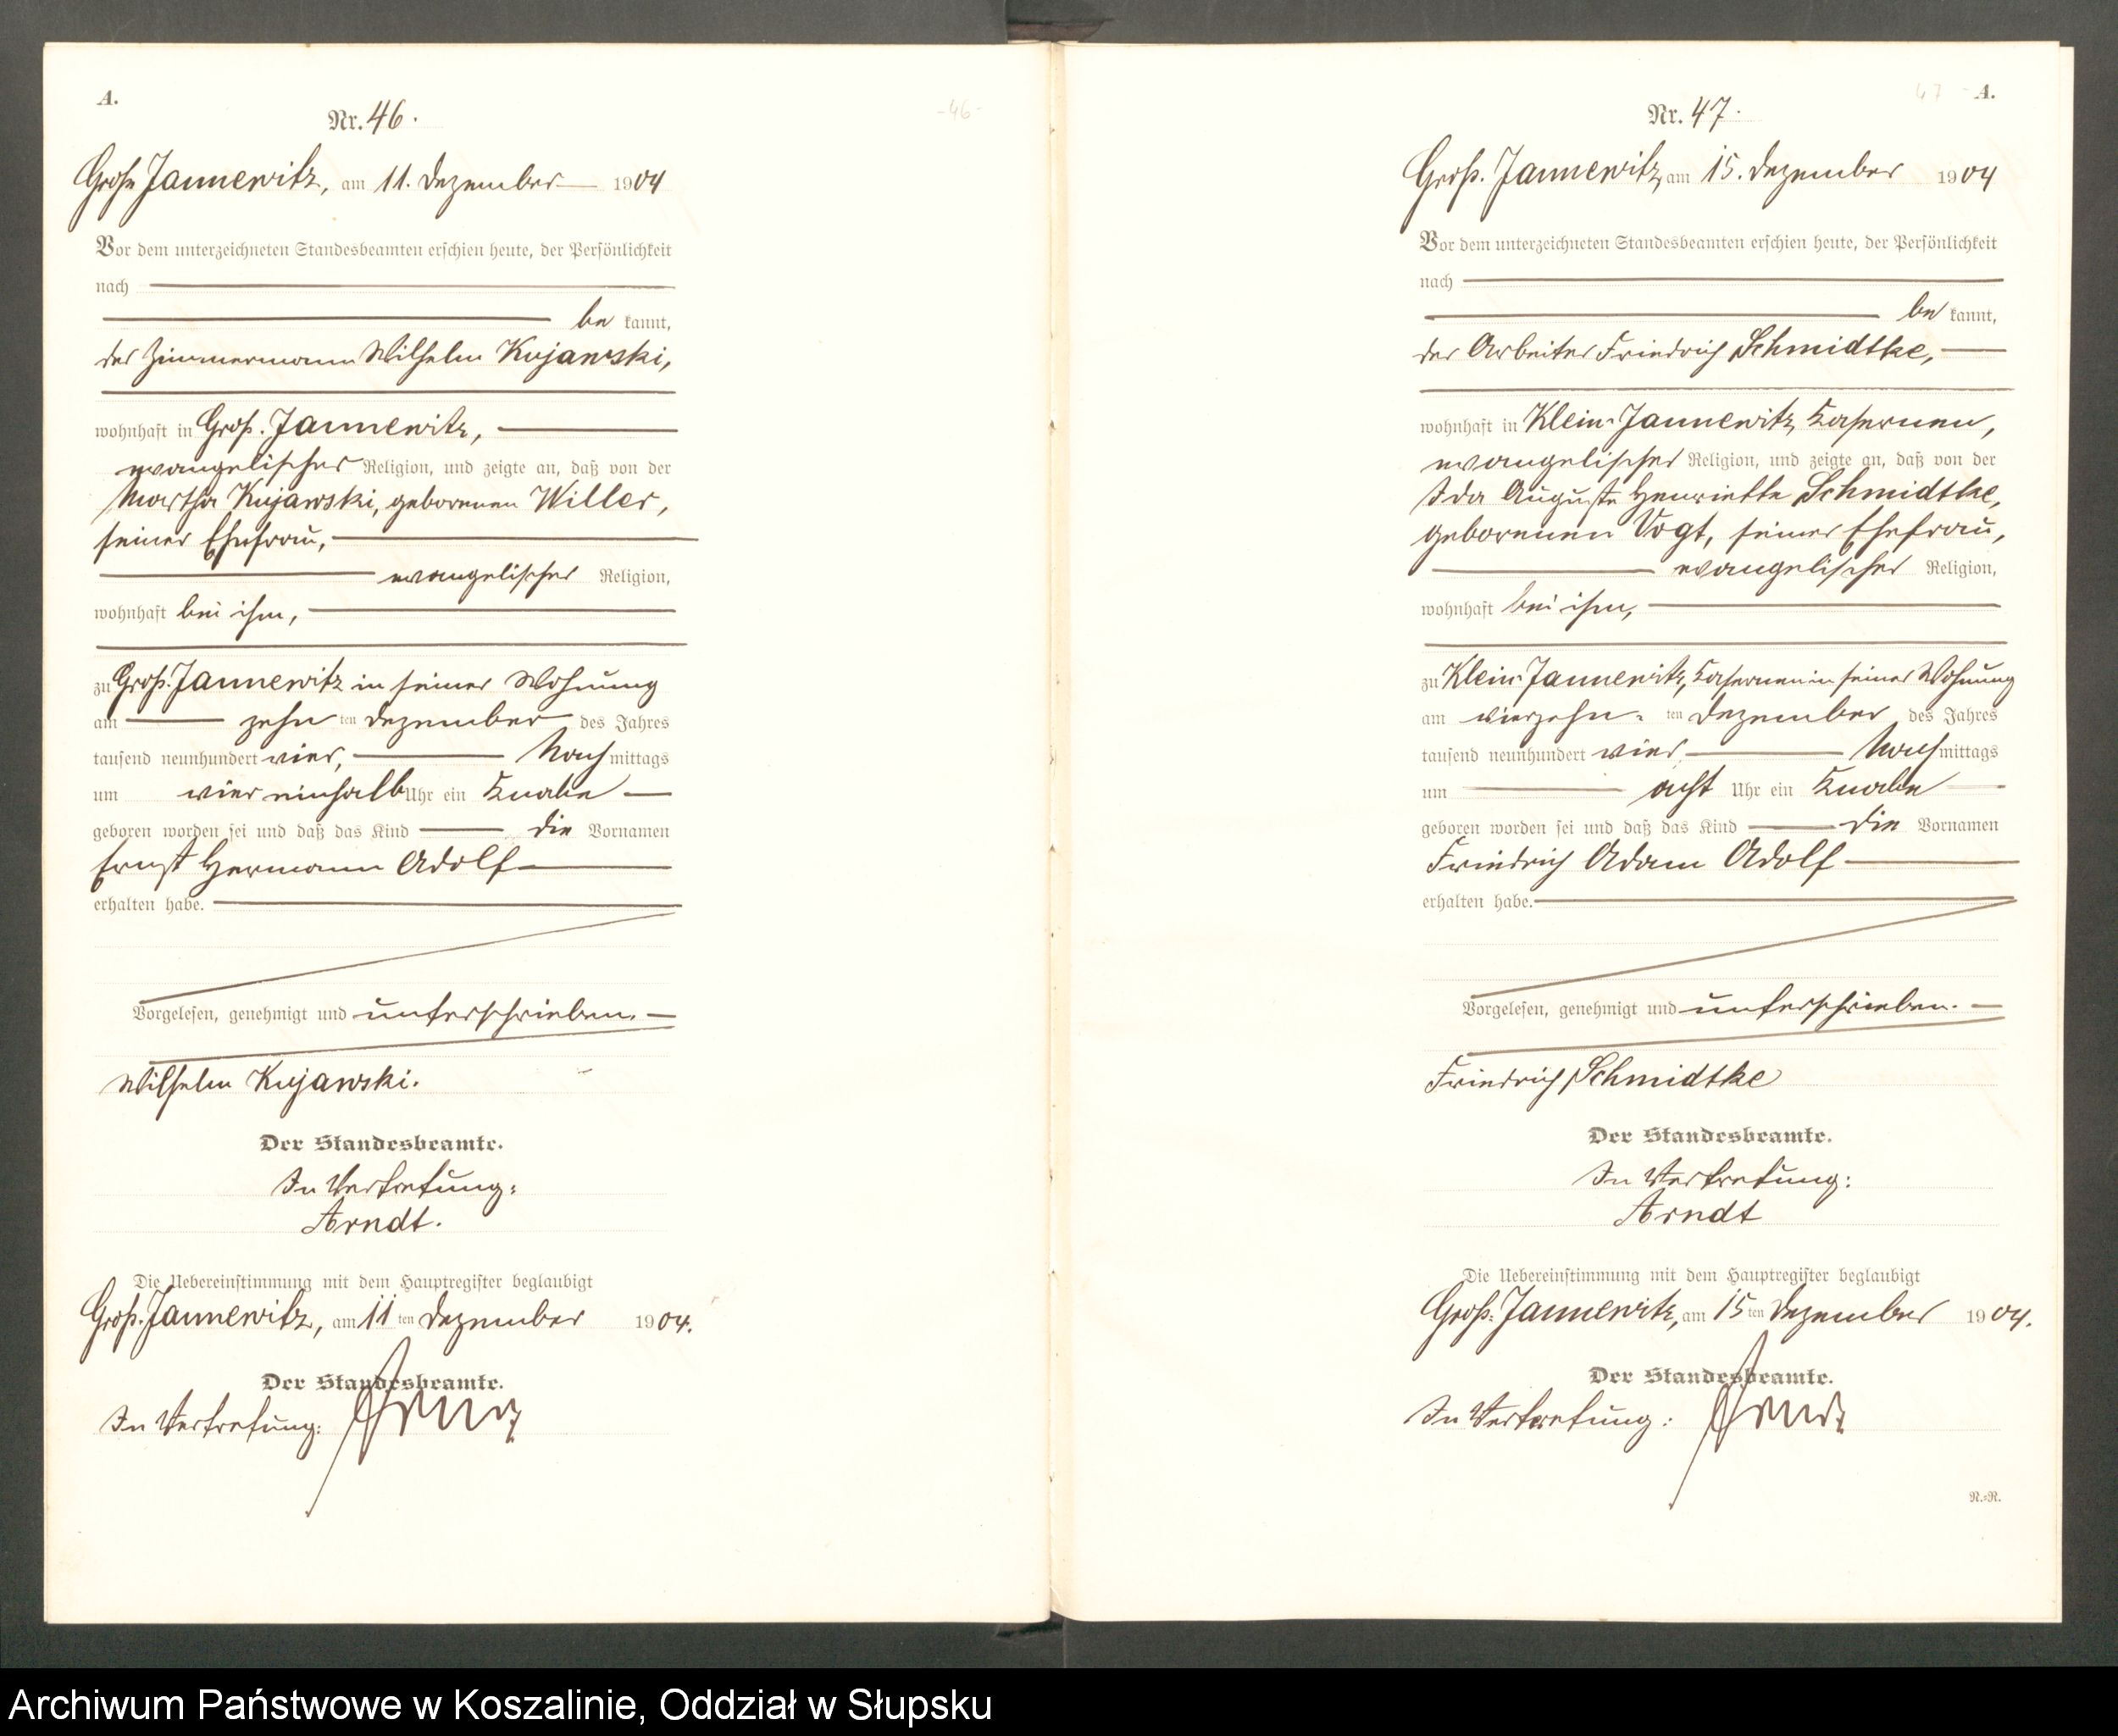 A.
Nr. 46.
-46-
Groß Jannewitz, am 11. Dezember 1904
Vor dem unterzeichneten Standesbeamten erschien heute, der Persönlichkeit
nach
be kannt,
der Zimmermann Wilhelm Kujawski,
wohnhaft in Groß-Jannewitz,
evangelischer Religion, und zeigte an, daß von der
Martha Kujawski, geborenen Willer,
seiner Ehefrau,
evangelischer Religion,
wohnhaft bei ihm,
zu Groß-Jannewitz in seiner Wohnung
am zehn ten Dezember des Jahres
tausend neunhundert vier, Nach mittags
um vier einhalb Uhr ein Knabe
geboren worden sei und daß das Kind die Vornamen
Ernst Hermann Adolf
erhalten habe.
Vorgelesen, genehmigt und unterschrieben.
Wilhelm Kujawski.
Der Standesbeamte.
In Vertretung:
Arndt.
Die Uebereinstimmung mit dem Hauptregister beglaubigt
Groß-Jannewitz, am 11 ten Dezember 1904.
Der Standesbeamte.
In Vertretung: Arndt
47 A.
Nr. 47.
Groß-Jannewitz, am 15. Dezember 1904
Vor dem unterzeichneten Standesbeamten erschien heute, der Persönlichkeit
nach
be kannt,
der Arbeiter Friedrich Schmidtke,
wohnhaft in Klein-Jannewitz, Kasernen,
evangelischer Religion, und zeigte an, daß von der
Ida Auguste Henriette Schmidtke,
geborenen Vogt, seiner Ehefrau,
evangelischer Religion,
wohnhaft bei ihm,
zu Klein-Jannewitz, Kasernen in seiner Wohnung
am vierzehn- ten Dezember des Jahres
tausend neunhundert vier, Nach mittags
um acht Uhr ein Knabe
geboren worden sei und daß das Kind die Vornamen
Friedrich Adam Adolf
erhalten habe.
Vorgelesen, genehmigt und unterschrieben.
Friedrich Schmidtke
Der Standesbeamte.
In Vertretung:
Arndt
Die Uebereinstimmung mit dem Hauptregister beglaubigt
Groß-Jannewitz, am 15 ten Dezember 1904.
Der Standesbeamte.
In Vertretung: Arndt
R.=R.
Archiwum Państwowe w Koszalinie, Oddział w Słupsku